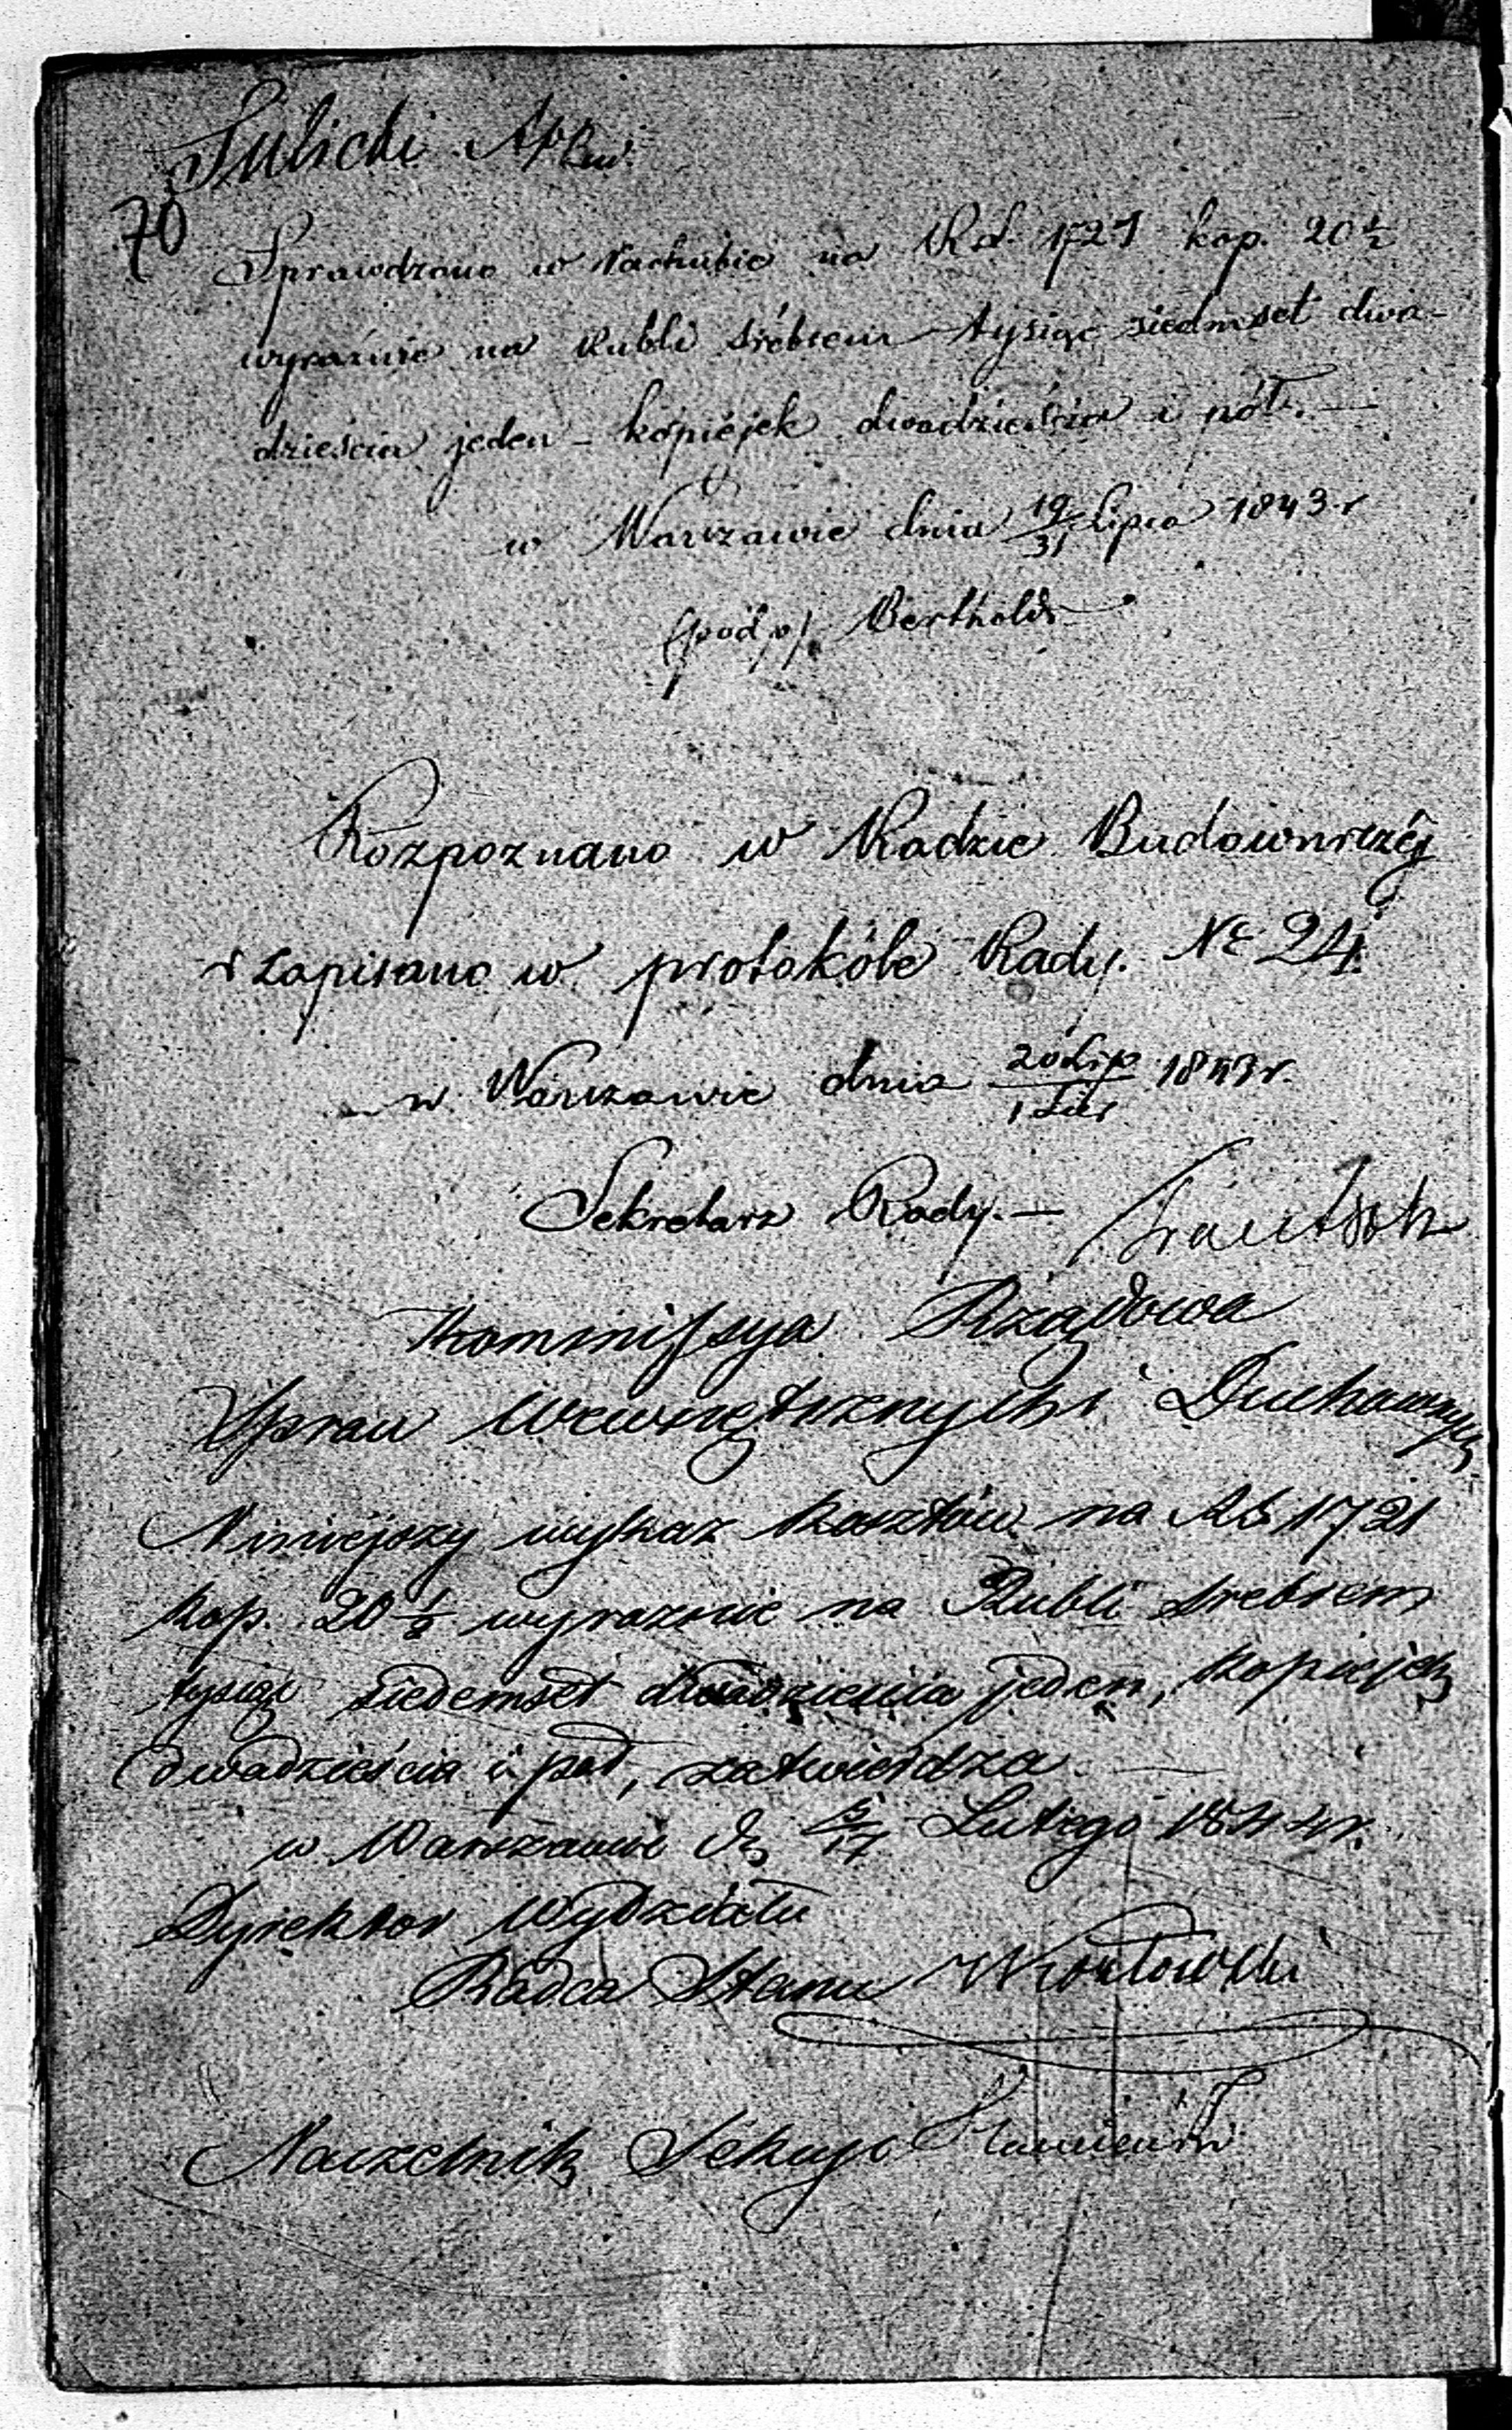 70
Sprawdzono w Rachubie na Rs. 1721 kop. 20½
wyraźnie na Rubli śrebrem tysiąc siedmset dwa-
dzieścia jeden – kopiéjek dwadzieścia i pół. —
w Warszawie dnia 19/31 Lipca 1843 r
(podp) Berthold
Rozpoznano w Radzie Budowniczéj
i zapisano w protokóle Rady. № 24.
w Warszawie dnia 20 Lip/1 Sier 1843 r.
Sekretarz Rady. —
Kommissya Rządowa
Spraw Wewnętrznych i Duchownych
Niniejszy wykaz kosztów na RS 1721
kop. 20½ wyraznie na Rubli srebrem
tysiąc siedemset dwadzieścia jeden, kopiejek
dwadzieścia i poł, zatwierdza. —
w Warszawie d. 5/17 Lutego 1844 r.
Dyrektor Wydziału
Radca Stanu
Naczelnik Sekcyi